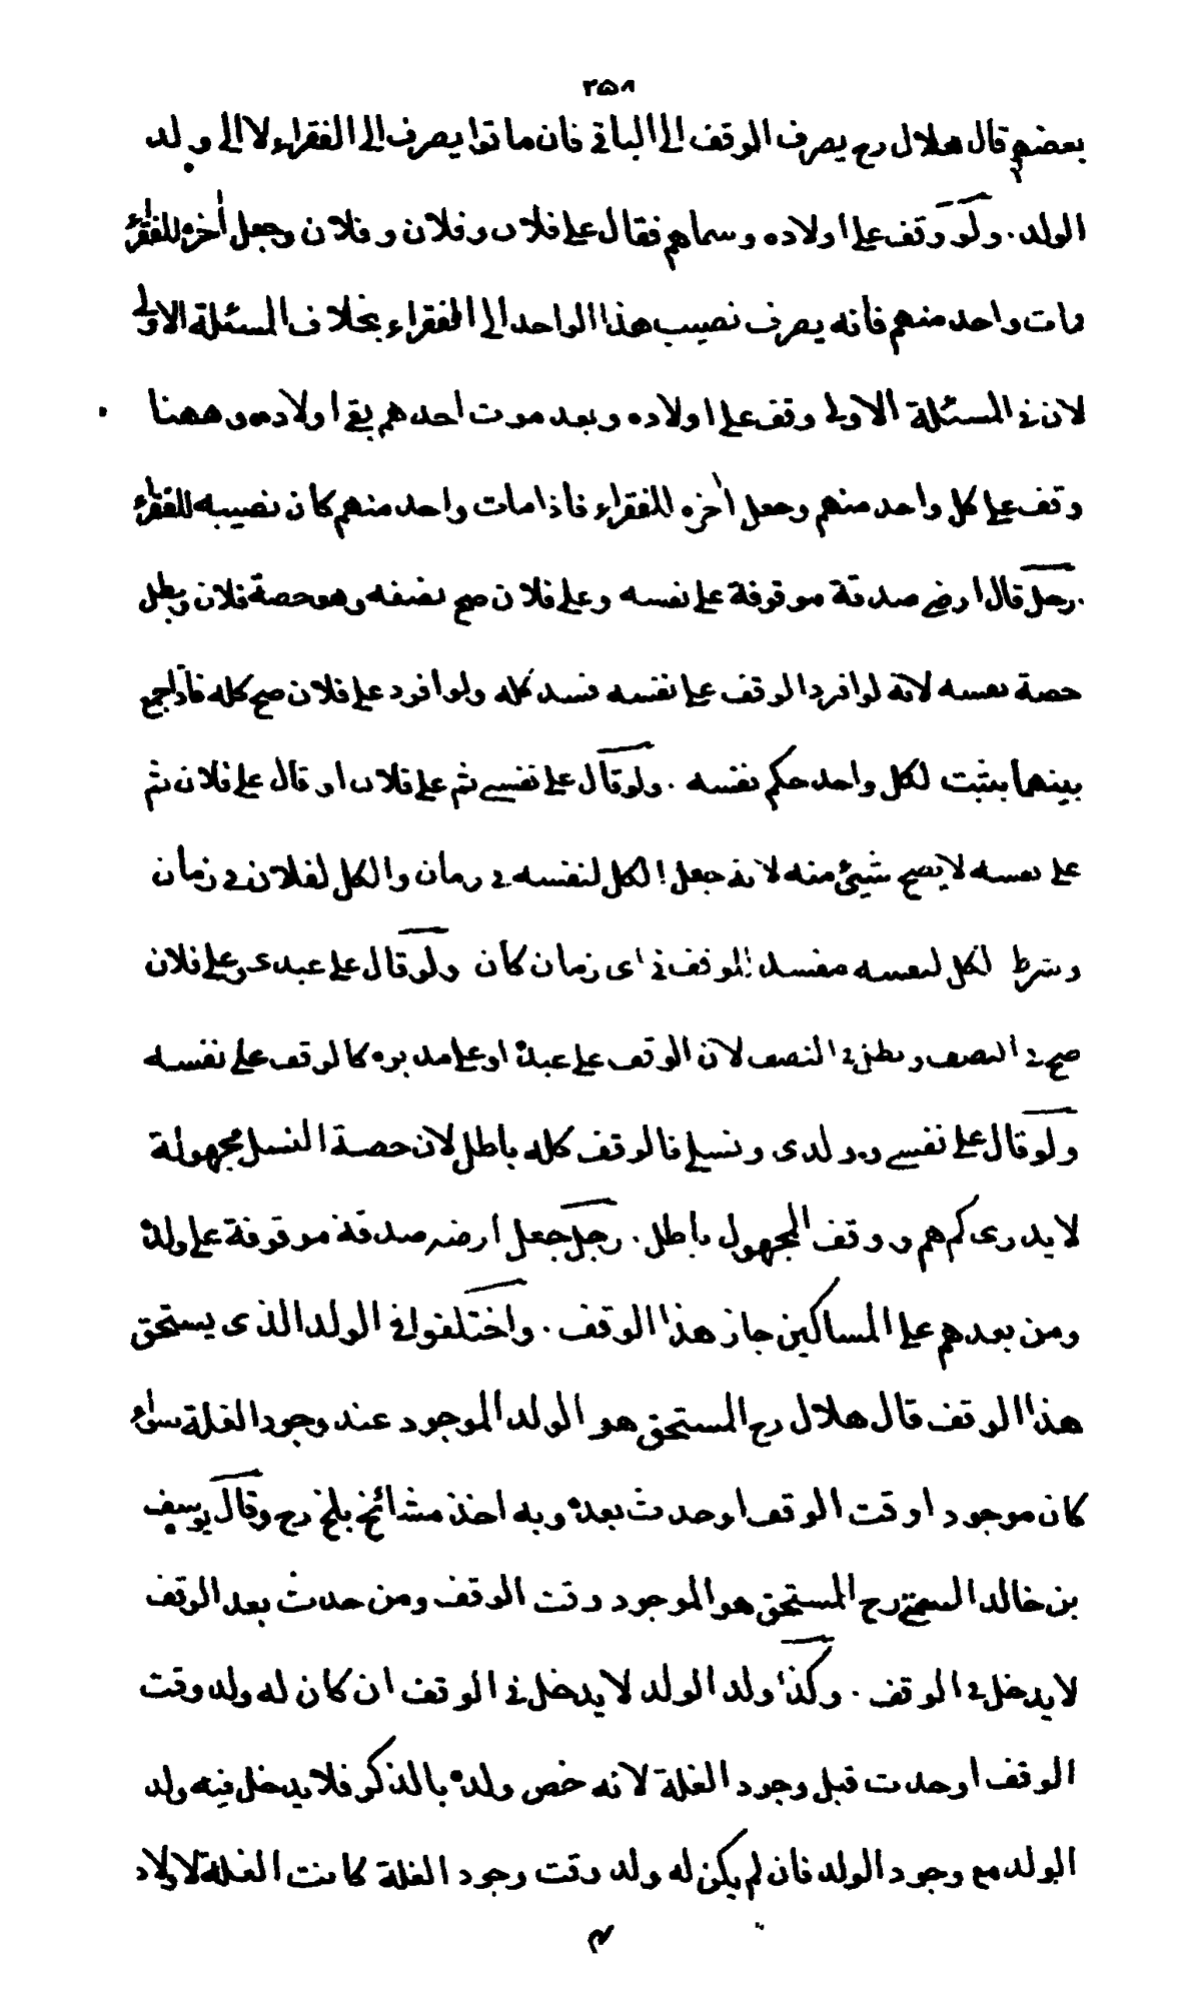 ۳۵۸
بعضهم قال هلال رح يصرف الوقف الى الباقى فان ماتوا يصرف الى الفقراء لا الى ولد
الولد . ولو وقف على اولاده وسماهم فقال على فلان وفلان وفلان وجعل اخره للفقراء
مات واحد منهم فانه يصرف نصيب هذا الواحد الى الفقراء بخلاف المسئلة الاولى
لان فى المسئلة الاولى وقف على اولاده وبعد موت احدهم بقى اولاده وههنا
وقف على كل واحد منهم وجعل اخره للفقراء فاذا مات واحد منهم كان نصيبه للفقراء
. رجل قال ارضى صدقة موقوفة على نفسه وعلى فلان صح نصفه وهو حصة فلان وبطل
حصة نفسه لانه لو افرد الوقف على نفسه فسد كله ولو افرد على فلان صح كله فاذا جمع
بينهما يثبت لكل واحد حكم نفسه . ولو قال على نفسى ثم على فلان او قال على فلان ثم
على نفسه لا يصح شيئ منه لانه جعل الكل لنفسه فى زمان والكل لفلان فى زمان
وشرط الكل لنفسه مفسد للوقف فى اى زمان كان ولو قال على عبدى وعلى فلان
صح فى النصف وبطل فى النصف لان الوقف على عبده او على مدبره كالوقف على نفسه
ولو قال على نفسى وولدى ونسلى فالوقف كله باطل لان حصة النسل مجهولة
لا يدرى كم هم ووقف المجهول باطل . رجل جعل ارضه صدقة موقوفة على ولده
ومن بعدهم على المساكين جاز هذا الوقف . واختلفوا فى الولد الذى يستحق
هذا الوقف قال هلال رح المستحق هو الولد الموجود عند وجود الغلة سواء
كان موجودا وقت الوقف او حدث بعده وبه اخذ مشائخ بلخ رح وقال يوسف
بن خالد السمتى رح المستحق هو الموجود وقت الوقف ومن حدث بعد الوقف
لا يدخل فى الوقف . وكذا ولد الولد لا يدخل فى الوقف ان كان له ولد وقت
الوقف او حدث قبل وجود الغلة لانه خص ولده بالذكر فلا يدخل فيه ولد
الولد مع وجود الولد فان لم يكن له ولد وقت وجود الغلة كانت الغلة لاولاد